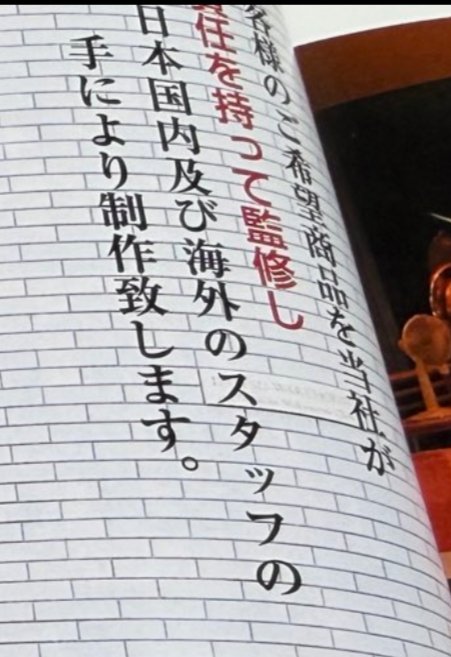 客様のご希望商品を当社が
責任を持って監修し
日本国内及び海外のスタッフの
手により制作致します。